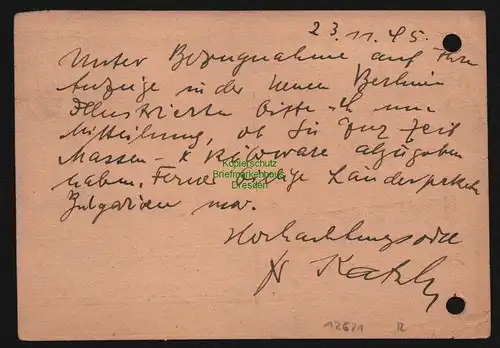 23.11.45.
Unter Bezugnahme auf Ihre
Anzeige in der Neuen Berliner
Illustrierten bitte ich um
Mitteilung, ob Sie zur Zeit
Massen- & Kiloware abzugeben
haben. Ferner Länderpakete
Bulgarien usw.
Hochachtungsvoll
Kopierschutz
Briefmarkenhaus
Dresden
12671 R